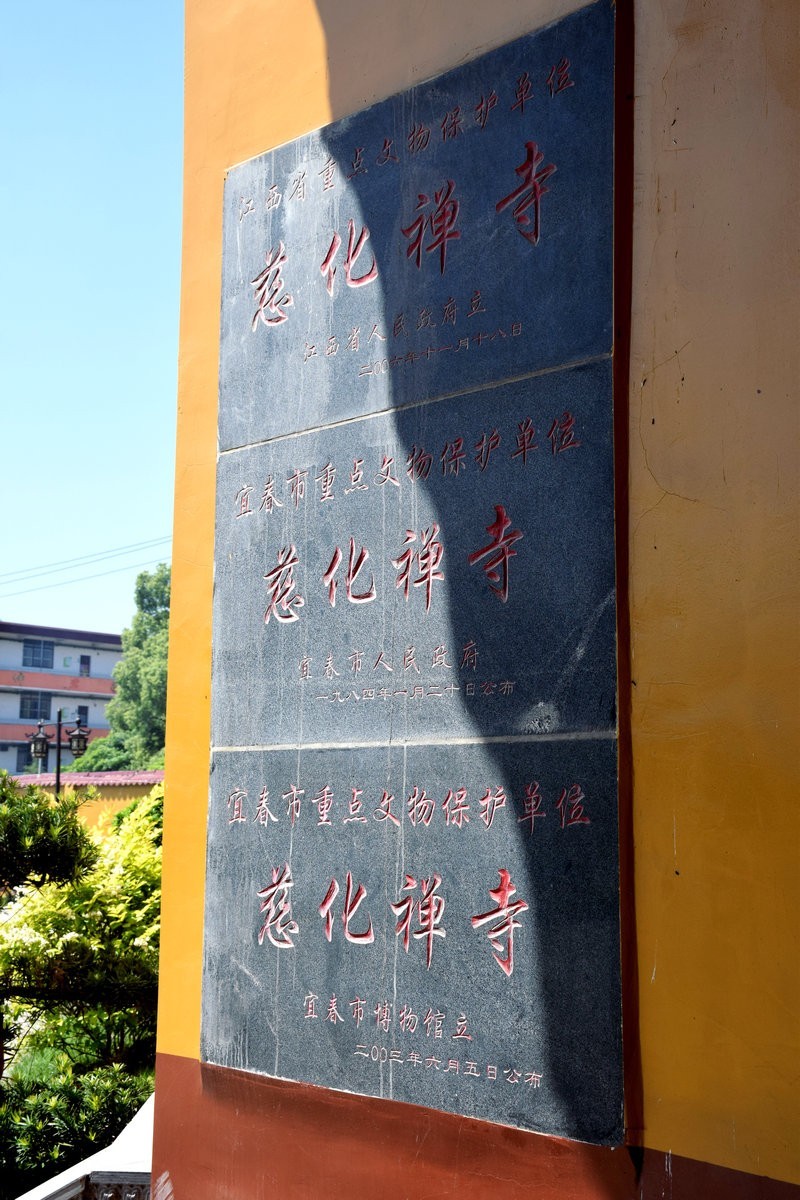 江西省重点文物保护单位
慈化禅寺
江西省人民政府立
二00六年十一月十八日
宜春市重点文物保护单位
慈化禅寺
宜春市人民政府
一九八四年一月二十日公布
宜春市重点文物保护单位
慈化禅寺
宜春市博物馆立
二00三年六月五日公布